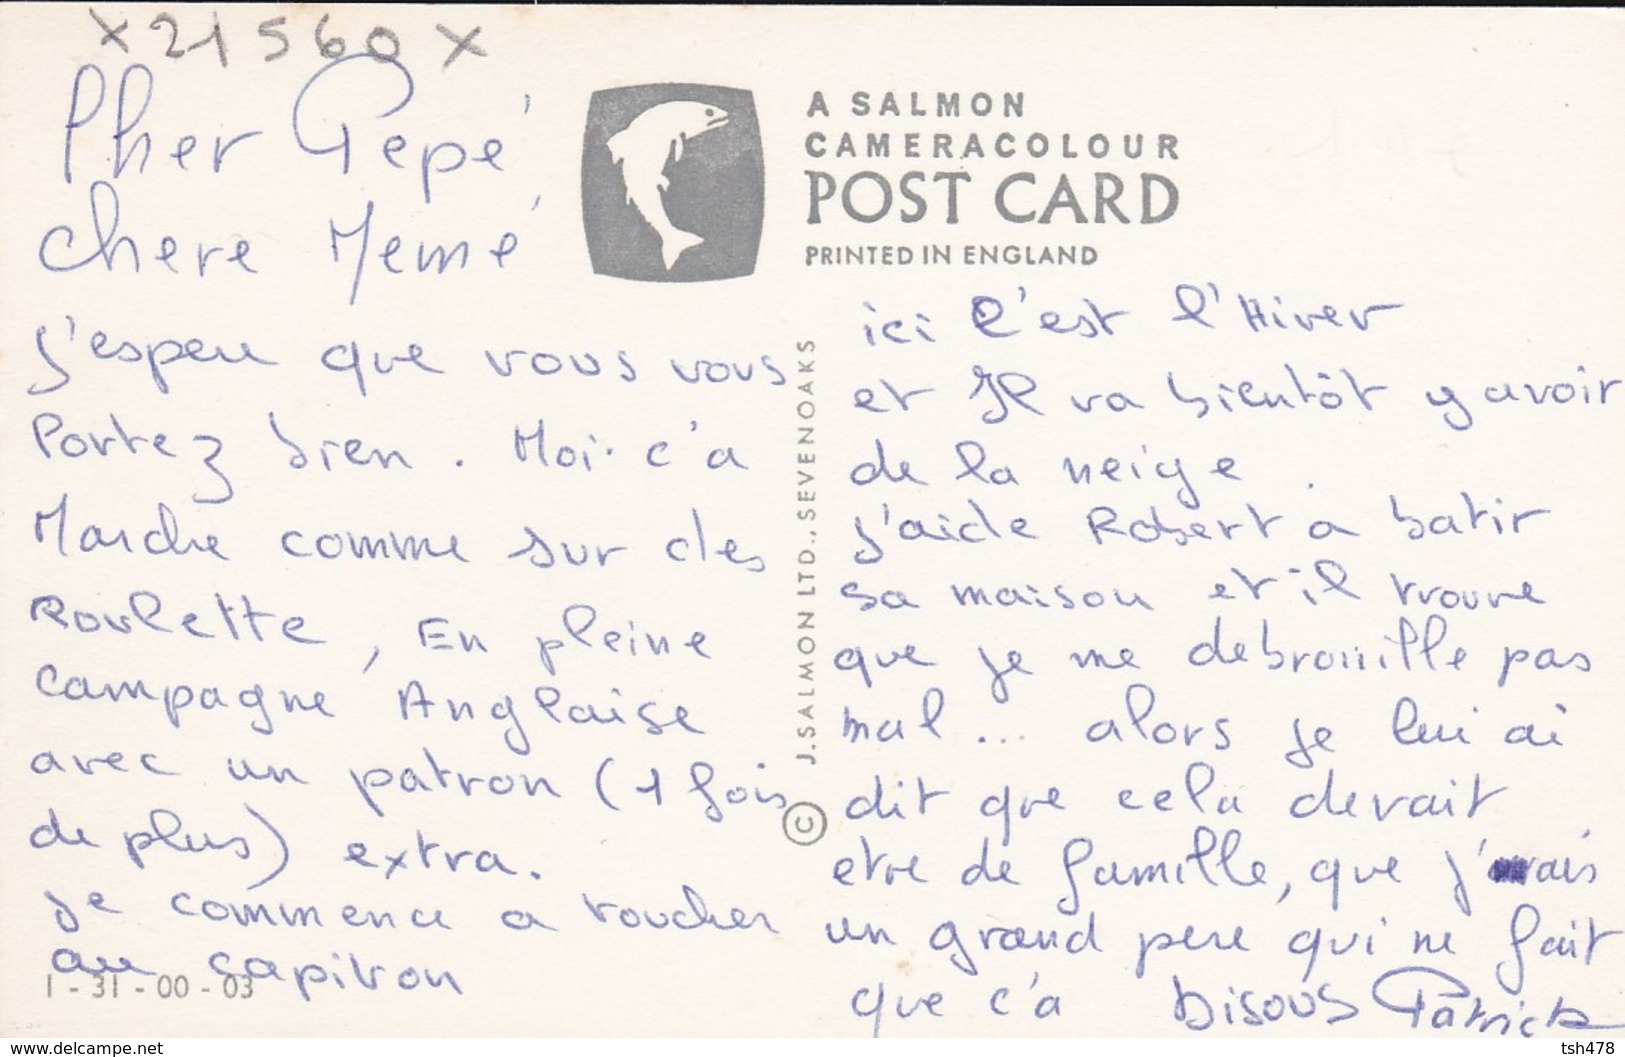 x 21560 x
Cher Pepé
chere Memé
j'espere que vous vous
Portez bien. Moi c'a
Marche comme sur des
Roulette, En pleine
campagne Anglaise
avec un patron (1 fois
de plus) extra.
je commence a toucher
au
1-31-00-03
A SALMON
CAMERACOLOUR
POST CARD
PRINTED IN ENGLAND
J. SALMON LTD., SEVENOAKS ©
ici C'est l'Hiver
et Il va bientôt y avoir
de la neige
j'aide Robert a batir
sa maison et il trouve
que je me debrouille pas
mal... alors je lui ai
dit que cela devait
etre de famille, que j'avais
un grand pere qui ne fait
que c'a bisous Patrick
www.delcampe.net
tsh478